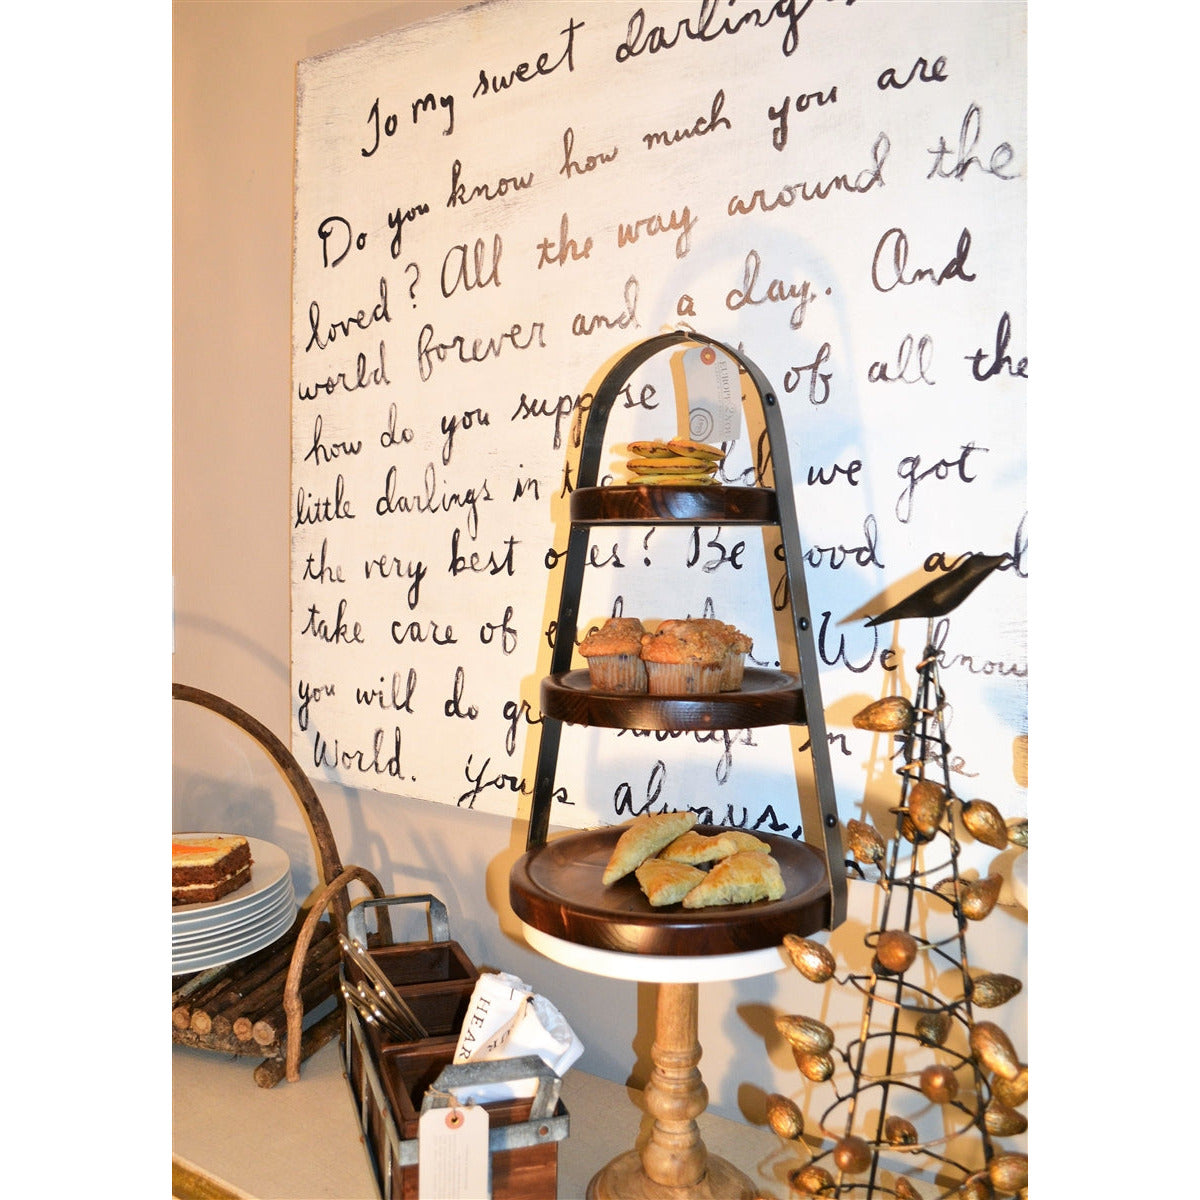 To my sweet darling
Do you know how much you are
loved? All the way around the
world forever and a day. And
how do you suppose of all the
little darlings in we got
the very best ones? Be good and
take care of We know
you will do things in the
World. Yours always,
EUROPE 2 YOU
HEAR